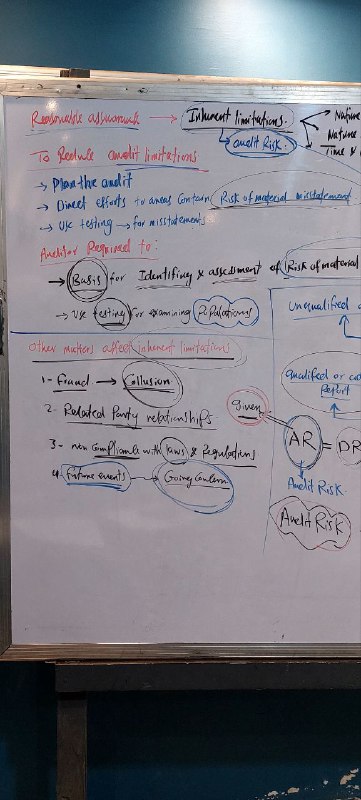 Reasonable assurance → Inherent limitations. → Nature
Nature
Time &
audit Risk.
To Reduce audit limitations
→ Plan the audit
→ Direct efforts to areas contain Risk of material misstatement
→ Use testing → for misstatements
Auditor Required to:
→ Basis for Identifing & assessment of Risk of material
→ Use testing for examining Populations
Other matters affect inherent limitations
1- Fraud → Collusion
2- Related Party relationships
3- non compliance with laws & Regulations
4- Future events → Going Concern
Unqualified
Qualified or
Report
Given
AR = DR
Audit Risk.
Audit Risk